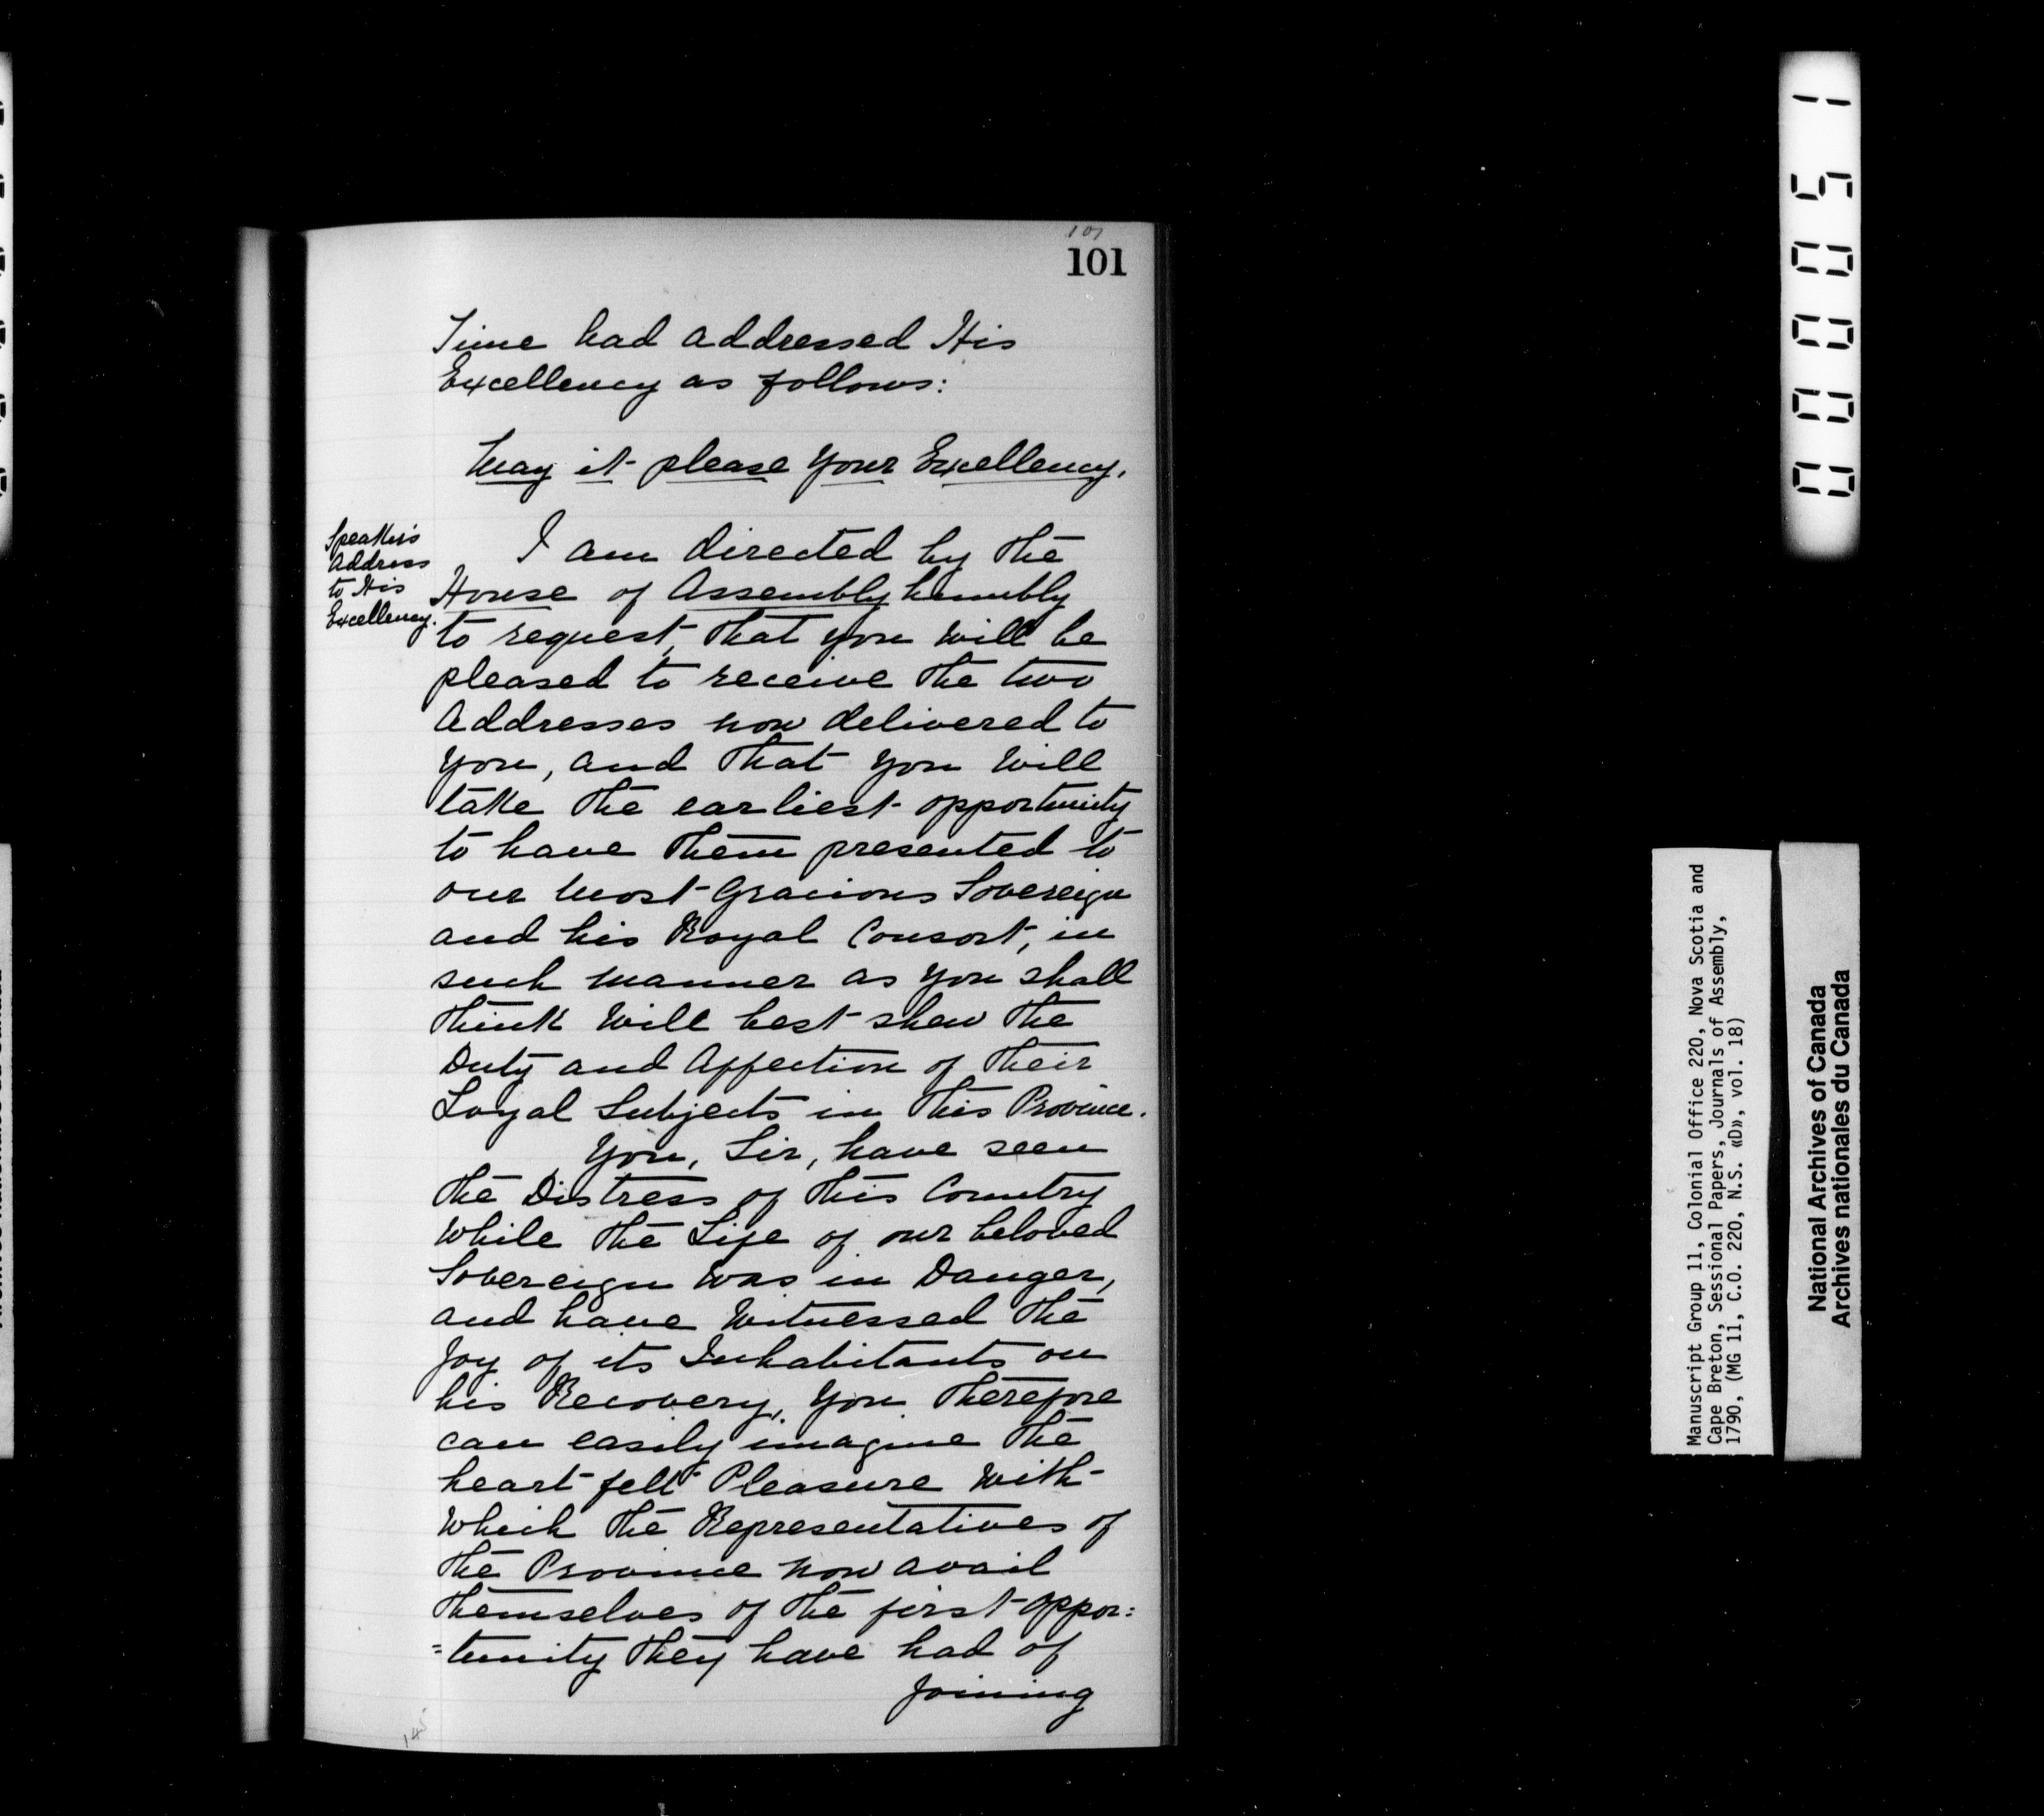 101
101
Time had addressed His
Excellency as follows:
May it please Your Excellency.
Speaker's
Address
to His
Excellency.
I am directed by the
House of Assembly humbly
to request, that you will be
pleased to receive the two
Addresses now delivered to
you, and that you will
take the earliest opportunity
to have them presented to
our most Gracious Sovereign
and his Royal Consort, in
such manner as you shall
think will best shew the
Duty and Affection of their
Loyal Subjects in this Province.
You, Sir, have seen
the Distress of this Country
while the Life of our beloved
Sovereign was in Danger,
and have witnessed the
Joy of its Inhabitants on
his Recovery, You therefore
can easily imagine the
heart-felt Pleasure with
which the Representatives of
the Province now avail
themselves of the first oppor=
=tunity they have had of
joining
145
000051
Manuscript Group 11, Colonial Office 220, Nova Scotia and
Cape Breton, Sessional Papers, Journals of Assembly,
1790, (MG 11, C.O. 220, N.S. «D», vol. 18)
National Archives of Canada
Archives nationales du Canada